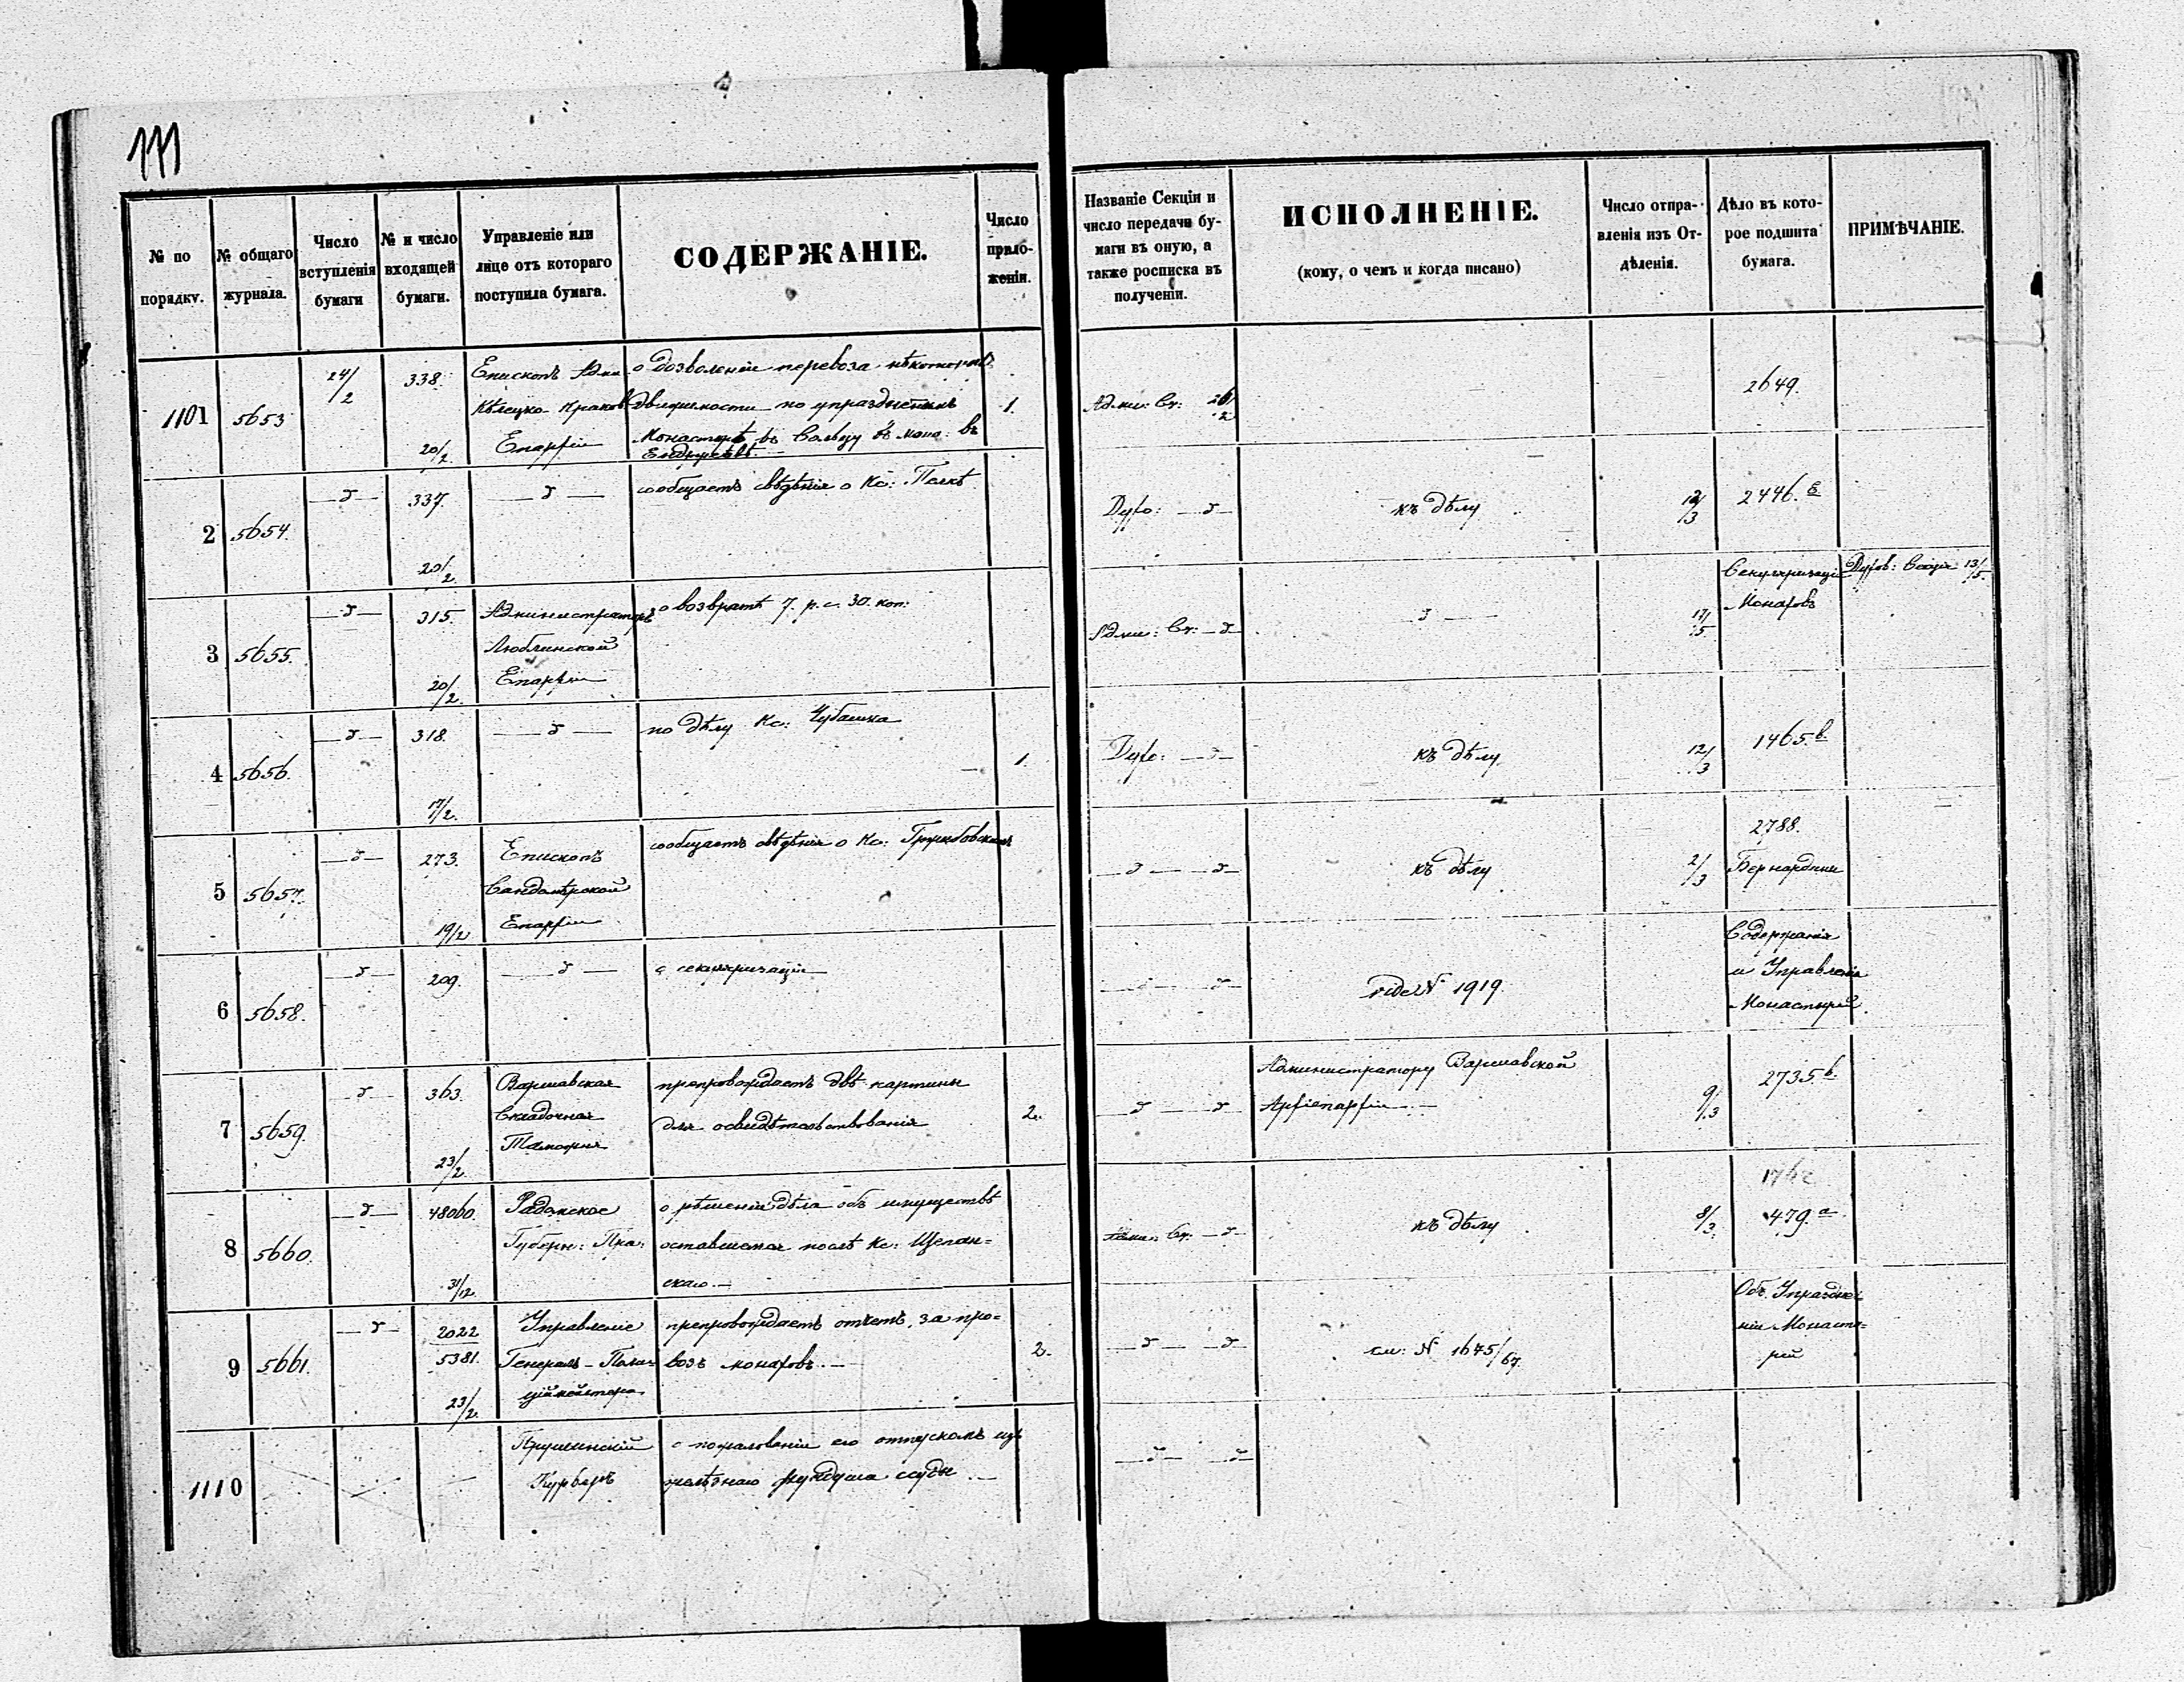 111
№ по порядку.
№ общаго журнала.
Число вступленія бумаги
№ и число входящей бумаги.
Управленіе или лице отъ котораго поступила бумага.
СОДЕРЖАНІЕ.
Число приложеніи.
Названіе Секціи и число передачи бумаги въ оную, а также росписка въ полученіи.
ИСПОЛНЕНІЕ.
(кому, о чемъ и когда писано)
Число отправленія изъ Отдѣленія.
Дѣло въ которое подшита бумага.
ПРИМѢЧАНІЕ.
1101 5653 24/2 338. 20/2
Епископъ
Кѣлецко-Краков
Епархіи
о дозволеніи перевоза нѣкоторой
движимости по упраздненнымъ
1.
26/2
2649.
2 5654. 337. 20/2
сообщаетъ свѣдѣнія о Кс:
Духо:
къ дѣлу
12/3
2446.
3 5655. 315. 20/2.
Администраторъ
Люблинской
Епархіи
о возвратѣ 7. р. с. 30. коп:
17/5
Секуляризація
Монаховъ
Духов: Секція 13/5.
4 5656. 318. 17/2.
по дѣлу Кс: Чубашка
1.
Духо:
къ дѣлу
12/3
1465.
5 5657. 273. 19/2
Епископъ
Сандомѣрской
Епархіи
сообщаетъ свѣдѣнія о Кс:
къ дѣлу
2/3
2788.
Бернардины
6 5658. 209.
о секуляризаціи
vide N 1919.
Содержанія
и Управленія
Монастырей.
7 5659. 363. 23/2
Варшавская
Складочная
Таможня
препровождаетъ двѣ картины
для освидѣтельствованія
2.
Администратору Варшавской
Архіепархіи
9/3
2735.
8 5660. 48060. 31/12
Радомское
Губерн: Пра:
о рѣшеніи дѣла объ имуществѣ
оставшемся послѣ Кс: Щепан=
скаго.
къ дѣлу
8/3.
1762
479. а
9 5661. 2022
5381. 23/2.
Управленіе
Генералъ-Поли=
ціймейстера
препровождаетъ отчетъ, за про=
возъ монаховъ.
2.
см: N 1675/67.
Объ Упраздне=
ніи Монасты=
рей
1110
о пожалованіи его отпускомъ изъ
фундуша ссуды